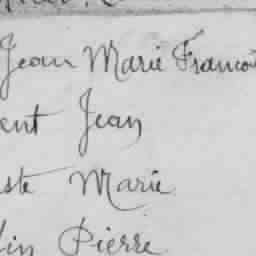 Jean Marie Francoi
ent Jean
ste Marie
lin Pierre